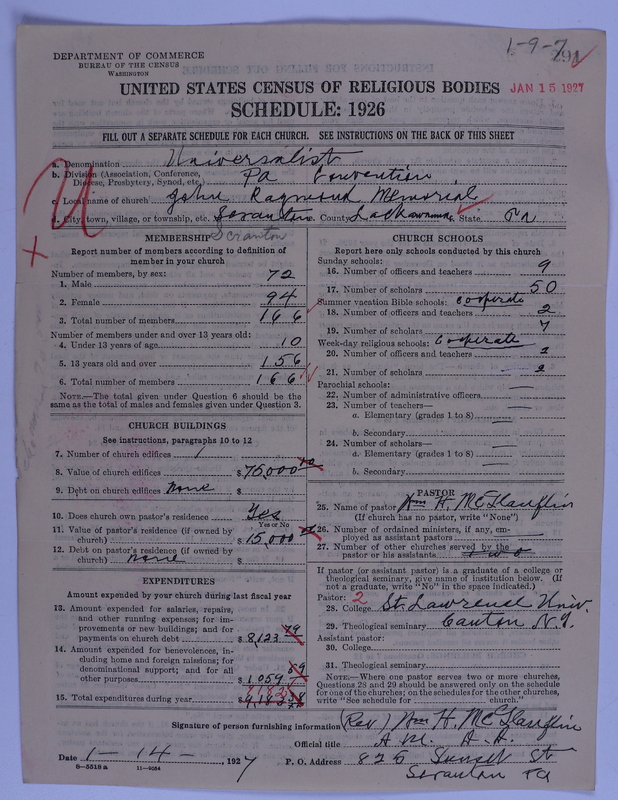 1-9-7
291
DEPARTMENT OF COMMERCE
BUREAU OF THE CENSUS
WASHINGTON
UNITED STATES CENSUS OF RELIGIOUS BODIES
JAN 15 1927
SCHEDULE: 1926
FILL OUT A SEPARATE SCHEDULE FOR EACH CHURCH. SEE INSTRUCTIONS ON THE BACK OF THIS SHEET
U
a. Denomination Universalist
b. Division (Association, Conference, Diocese, Presbytery, Synod, etc.) Pa Convention
c. Local name of church John Raymond Memorial
d. City, town, village, or township, etc. Scranton County Lackawanna State Pa
Scranton
MEMBERSHIP
Report number of members according to definition of member in your church
Number of members, by sex:
1. Male 72
2. Female 94
3. Total number of members 166
Number of members under and over 13 years old:
4. Under 13 years of age 10
5. 13 years old and over 156
6. Total number of members 166
NOTE.—The total given under Question 6 should be the same as the total of males and females given under Question 3.
CHURCH BUILDINGS
See instructions, paragraphs 10 to 12
7. Number of church edifices 1
8. Value of church edifices $75,000
9. Debt on church edifices None $
10. Does church own pastor's residence Yes
Yes or No
11. Value of pastor's residence (if owned by church) $15,000
12. Debt on pastor's residence (if owned by church) none $
EXPENDITURES
Amount expended by your church during last fiscal year
13. Amount expended for salaries, repairs, and other running expenses; for improvements or new buildings; and for payments on church debt $8,123 79
14. Amount expended for benevolences, including home and foreign missions; for denominational support; and for all other purposes $1,059
15. Total expenditures during year $9,183
CHURCH SCHOOLS
Report here only schools conducted by this church
Sunday schools:
16. Number of officers and teachers 9
17. Number of scholars 50
Summer vacation Bible schools: Cooperate
18. Number of officers and teachers 2
19. Number of scholars 7
Week-day religious schools: Cooperate
20. Number of officers and teachers
21. Number of scholars
Parochial schools:
22. Number of administrative officers
23. Number of teachers—
a. Elementary (grades 1 to 8)
b. Secondary
24. Number of scholars—
a. Elementary (grades 1 to 8)
b. Secondary
PASTOR
25. Name of pastor Wm H. McGlauflin
(If church has no pastor, write "None")
26. Number of ordained ministers, if any, employed as assistant pastors
27. Number of other churches served by the pastor or his assistants
If pastor (or assistant pastor) is a graduate of a college or theological seminary, give name of institution below. (If not a graduate, write "No" in the space indicated.)
Pastor: 2
28. College St. Lawrence Univ.
29. Theological seminary Canton N.Y.
Assistant pastor:
30. College
31. Theological seminary
NOTE.—Where one pastor serves two or more churches, Questions 28 and 29 should be answered only on the schedule for one of the churches; on the schedules for the other churches, write "See schedule for church."
Signature of person furnishing information (Rev) Wm H. McGlauflin
Official title
Date 1-14-, 1927
P. O. Address 825 Sunset St
Scranton Pa
8-5518 a 11-4084